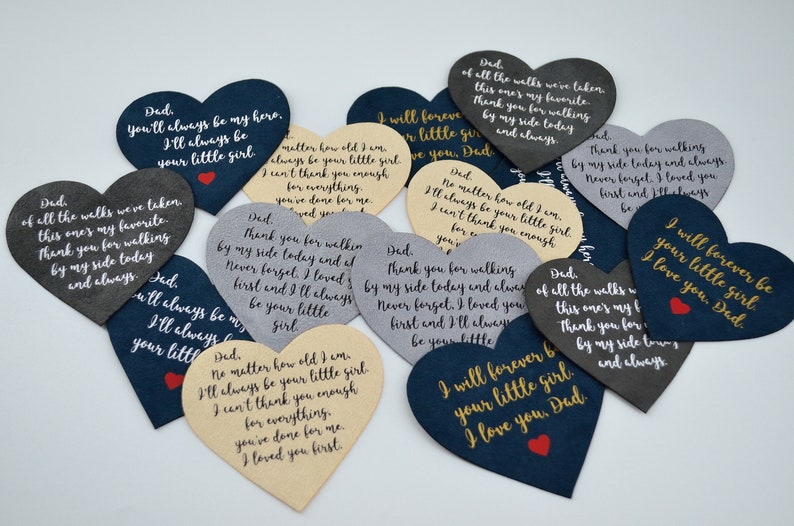 Dad,
You'll always be my hero,
I'll always be
your little girl.
I will forever be
your little girl.
I love you, Dad.
Dad,
of all the walks we've taken,
this one's my favorite.
Thank you for walking
by my side today
and always.
matter how old I am,
always be your little girl.
I can't thank you enough
for everything,
you've done for me.
I loved you first.
Dad,
Thank you for walking
by my side today and always.
Never forget, I loved you
first and I'll always
be your little
Dad,
of all the walks we've taken,
this one's my favorite.
Thank you for walking
by my side today
and always.
Dad,
Thank you for walking
by my side today and al
Never forget, I loved
first and I'll always
be your little
girl.
Dad,
No matter how old I am,
I'll always be your little girl.
I can't thank you enough
for everything
Dad,
Thank you for walking
by my side today and always
Never forget, I loved you
first and I'll always
be your
I will forever be
your little girl.
I love you, Dad.
You'll always be my
I'll always
your little
Dad,
of all the walks we've taken,
this one's my favorite.
Thank you for walking
by my side today
and always.
Dad,
No matter how old I am,
I'll always be your little girl.
I can't thank you enough
for everything,
you've done for me.
I loved you first.
I will forever be
your little girl.
I love you, Dad.